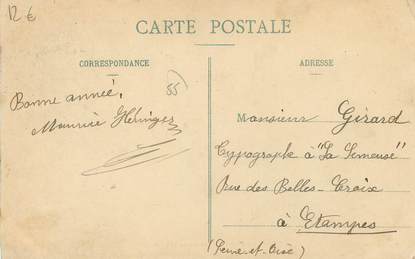 12 €
CARTE POSTALE
CORRESPONDANCE
ADRESSE
85
Bonne année,
Maurice
Monsieur Girard
Typographe à "La Semeuse"
Rue des Belles-Croix
à Etampes
(Seine-et-Oise)